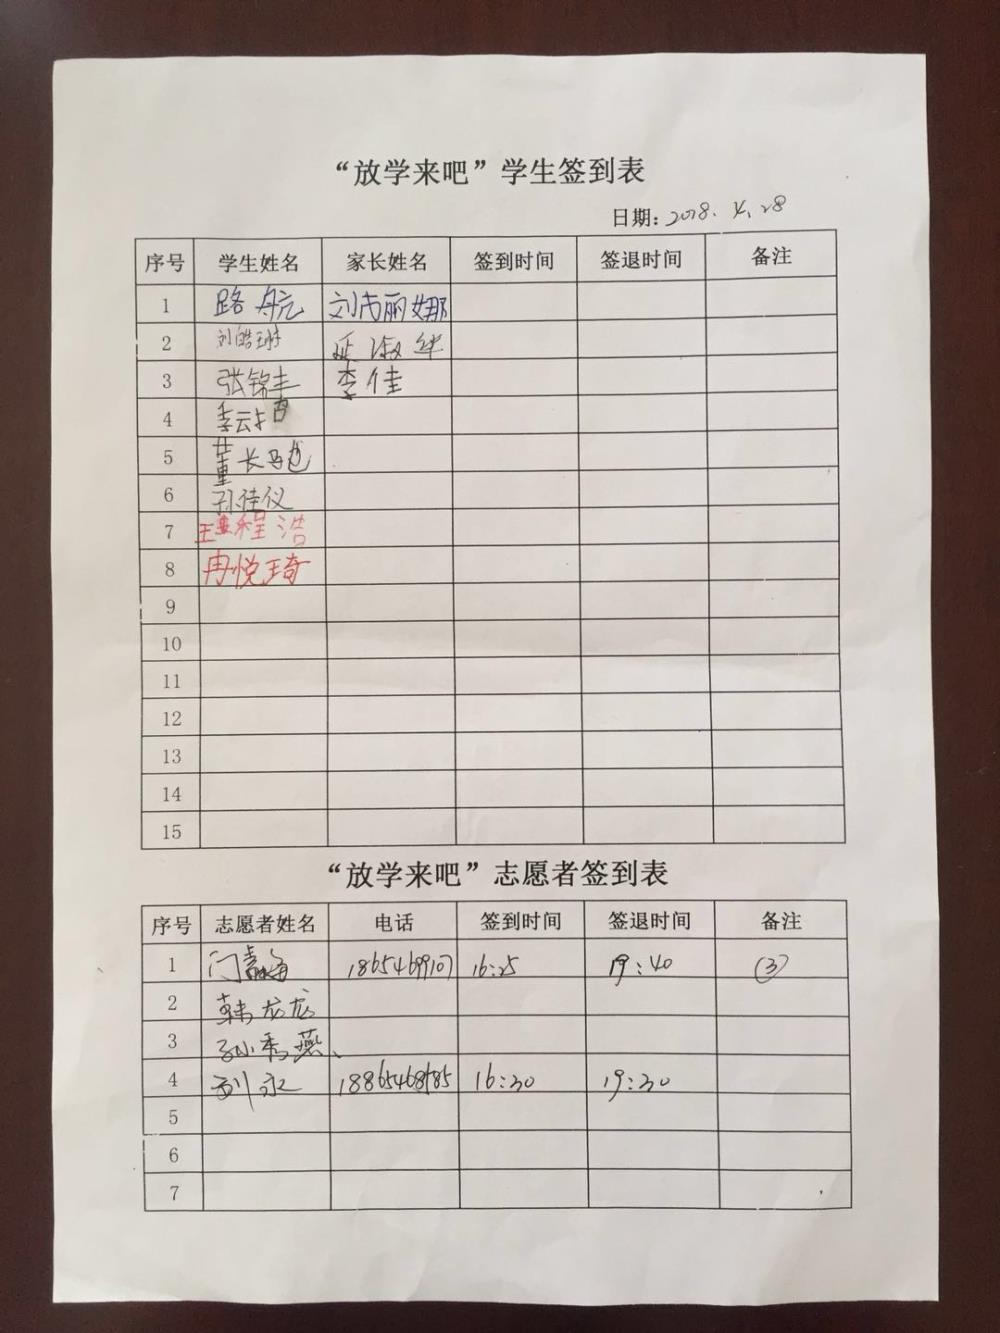 “放学来吧”学生签到表
日期：2018.4.28
序号 学生姓名 家长姓名 签到时间 签退时间 备注
1 路航
2
3 张锦丰 李佳
4
5 董长
6 孙佳仪
7 程浩
8 冉悦琦
9
10
11
12
13
14
15
“放学来吧”志愿者签到表
序号 志愿者姓名 电话 签到时间 签退时间 备注
1 16:25 19:40 ③
2 韩龙龙
3 孙秀燕、
4 刘永 16:30 19:30
5
6
7